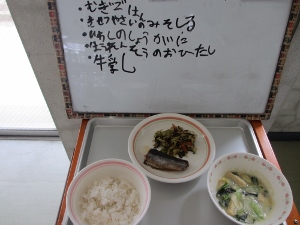 ・むぎごはん
・きせつやさいのみそしる
・いわしのしょうがに
・ほうれんそうのおひたし
・牛乳